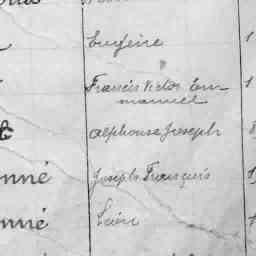 Eugène
Francis Victor Em
manuel
Alphonse Joseph
onné Joseph François
onné Léon